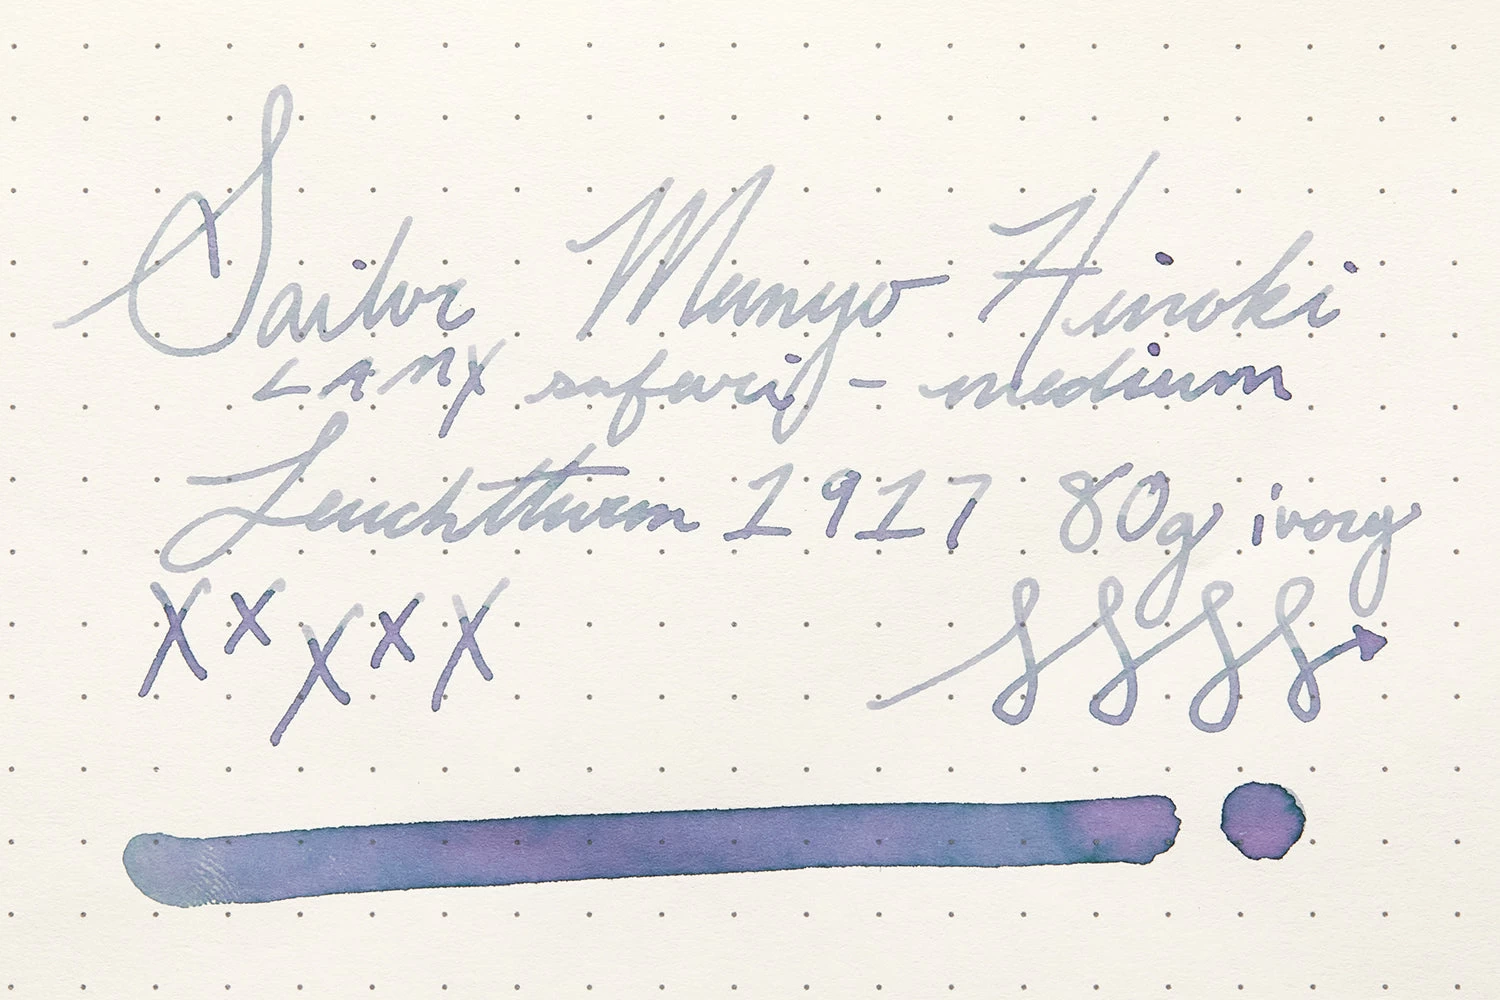 Sailor Manyo Hinoki
LAMY safari - medium
Leuchtturm 1917 80g ivory
XxXxX